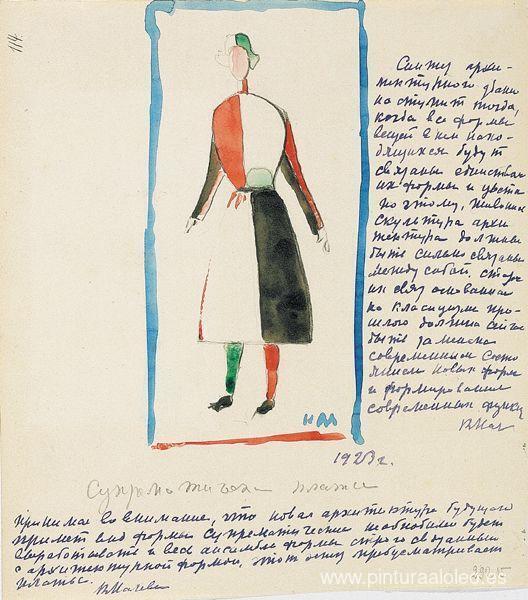 114.
Синтез архи-
тектурного здания
наступит тогда,
когда все формы
вещей в нем нахо-
дящихся будут
связаны единством
их формы и цвета
по этому, живопись
скульптура архи
тектура должны
быть сильно связаны
между собой, старая
их связь основанная
на классицизме про-
шлого должна
быть заменена
современным
новых форм
и формирования
современных
К Мал
КМ
1923 г.
Супрематическ платье
Принимая во внимание, что новая архитектура будущего
примет вид формы супрематические необходимо будет
выработать и весь ансамбль формы строго связанный
с архитектурной формою, этот эскиз предусматривает
платье.
К Малеви
www.pinturaaloleo.es